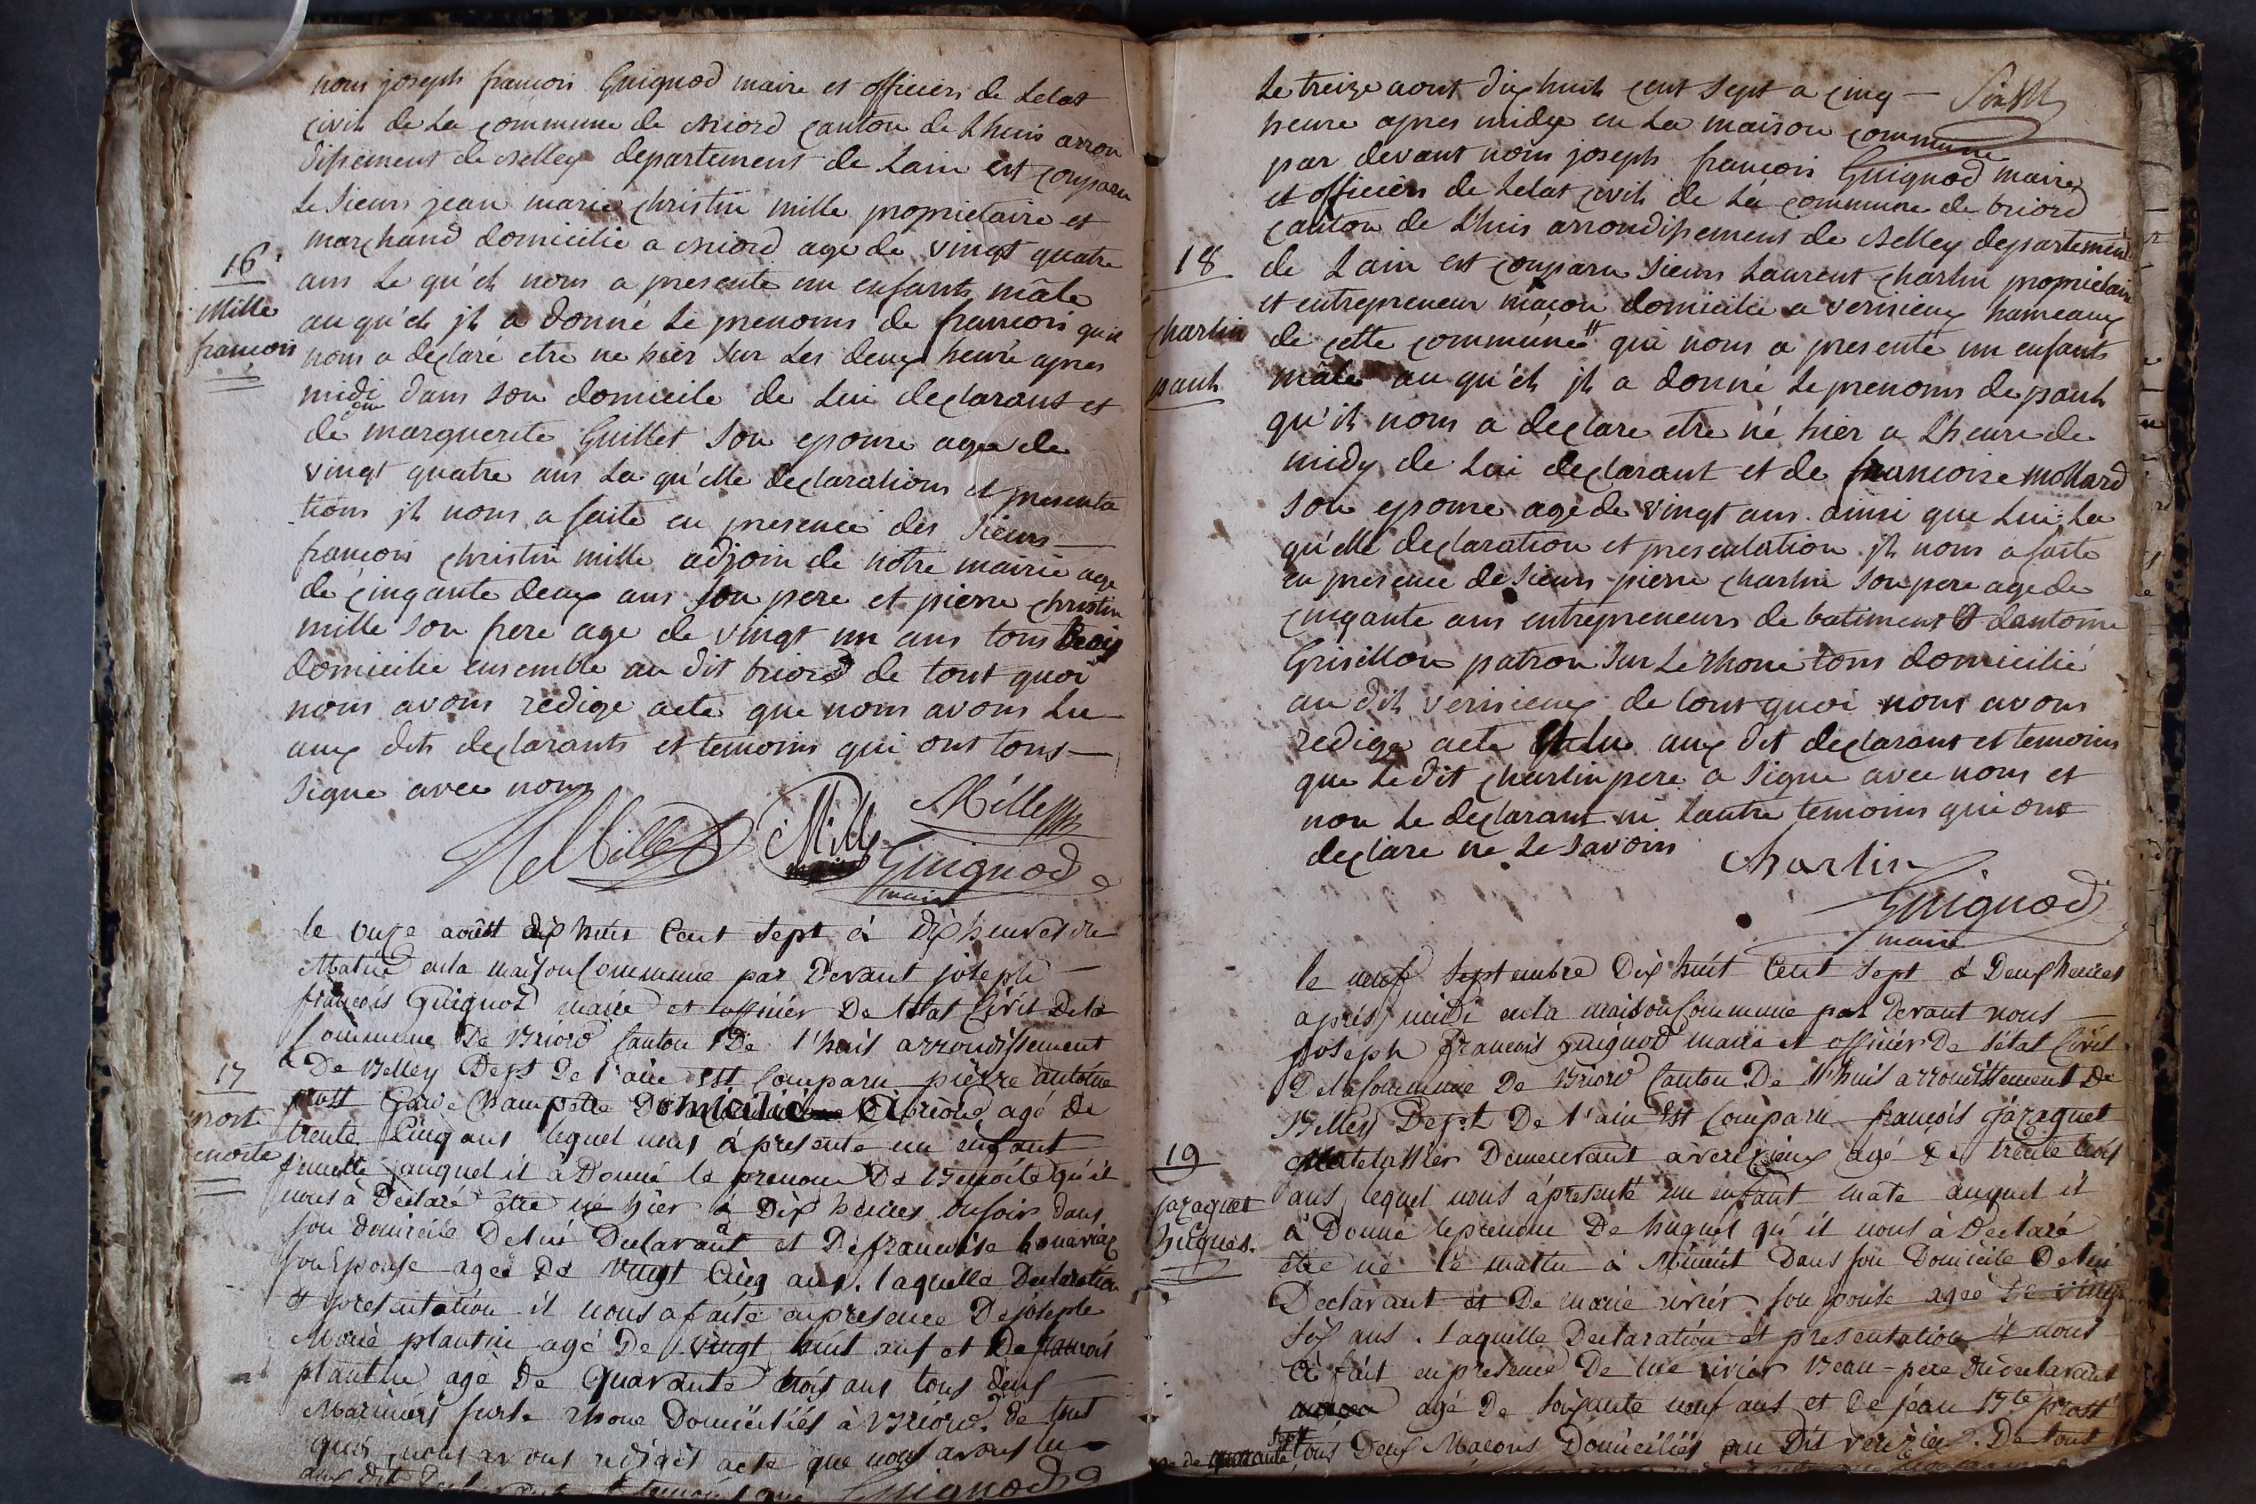 nous joseph francois Guignod maire et officiers de Letat
civil de La commune de Briord canton de Lhuis arron
dissement de Belley departement de Lain est comparu
Le Sieurs jean marie christin mille proprietaire et
marchand domicilie a Briord age de vingt quatre
16
ans Le qu'el nous a presente un enfants mâle
Mille
auqu'el jl a donné Le prenoms de francois qu'il
francois
nous a declaré etre ne hier sur Les deux heure apres
midi dans son domicile de Lui declarant et
de marguerite Guillet son epouse agee de
vingt quatre ans La qu'elle declarations et presenta
tions jl nous a faite en presence des Sieurs
francois christin mille adjoin de notre mairie age
de cinqante deux ans son pere et pierre christin
mille son frere age de vingt un ans tous trois
domicilie ensemble au dit briord de tout quoi
nous avons redige acte que nous avons Lu
aux dits declarants et temoins qui ont tous
signe avec nous
Mille
Mille
Mille
Guignod
maire
le onze août dix huit Cent sept à dix heures du
Matin en la maison Commune par Devant joseph
françois Guignod maire et officier De l'Etat Civil De la
Commune De Briord Canton De l'huis arrondissement
De Belley Dept De l'ain est Comparu pierre antoine
17
prost Garde Champetre Domicilié a Briord agé De
prost
trente Cinq ans lequel nous à presente un enfant
benoite
femelle auquel il à Donné le prenom De Benoite qu'il
nous à Déclaré être né hier à Dix heures du soir dans
son domicile De lui Declarant et De francoise
son Epouse agee De vingt Cinq ans. laquelle Declaration
et presentation il nous a faite en presence De joseph
Marie plantin agé De vingt huit ans et De francois
plantin agé de Quarante trois ans tous deux
Mariniers sur le Rhone Domiciliés à Briord. De tout
quoi nous avons redigés acte que nous avons lu
Guignod
Le treize aout dix huit cent sept a cinq
heure apres midy en La maison commune
par devant nous joseph francois Guignod maire
et officiers de Letat civil de La commune de briord
canton de Lhuis arrondissement de Belley departement
18
de Lain est comparu Sieurs Laurent charlin proprietaire
et entrepreneur maçon domicilie a verisieux hameaux
charlin
de cette commune qui nous a presenté un enfants
paul
mâle auqu'el jl a donné Le prenoms de paul
qu'il nous a declare etre né hier a Lheure de
midy de Lui declarant et de francoise mollard
son epouse agé de vingt ans ainsi que Lui La
qu'elle declaration et presentation jl nous a faite
en presence de sieurs pierre charlin son pere age de
cinqante ans entrepreneurs de batiment et dantoine
Grisillon patron sur Le rhone tous domicilié
au dit verisieux de tout quoi nous avons
redige acte et Lu aux dit declarant et temoins
que Le dit charlin pere a signe avec nous et
non Le declarant ni Lautre temoins qui ont
declare ne Le savoirs
charlin
Guignod
maire
le neuf Septembre Dix huit Cent sept à Deux heures
après midi en la maison Commune par Devant nous
joseph françois Guignod maire et officier De l'état Civil
De la Commune De Briord Canton De l'huis arrondissement De
Belley Dept De l'ain est Comparu françois jazaquet
19
Matelassier Demeurant a verizieux agé De trente trois
jazaquet
ans lequel nous à presenté un enfant mâle auquel il
hugues.
à Donné le prenom De hugues qu'il nous à Déclaré
être né le matin à Minuit Dans son Domicile De lui
Declarant et De marie rivier son Epouse agée De vingt
six ans. laquelle Declaration et presentation il nous
a fait en presence De rivier Beau-pere du declarant
agé De soixante neuf ans et De jean Bte prost
tous Deux Macons Domiciliés au Dit verizieux. De tout